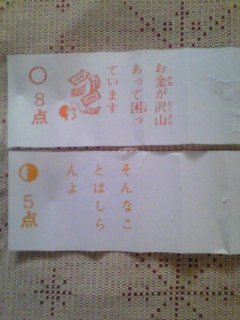 お金が沢山
あって困っ
ています
○
8点
そんなこ
とはしら
んよ
5点